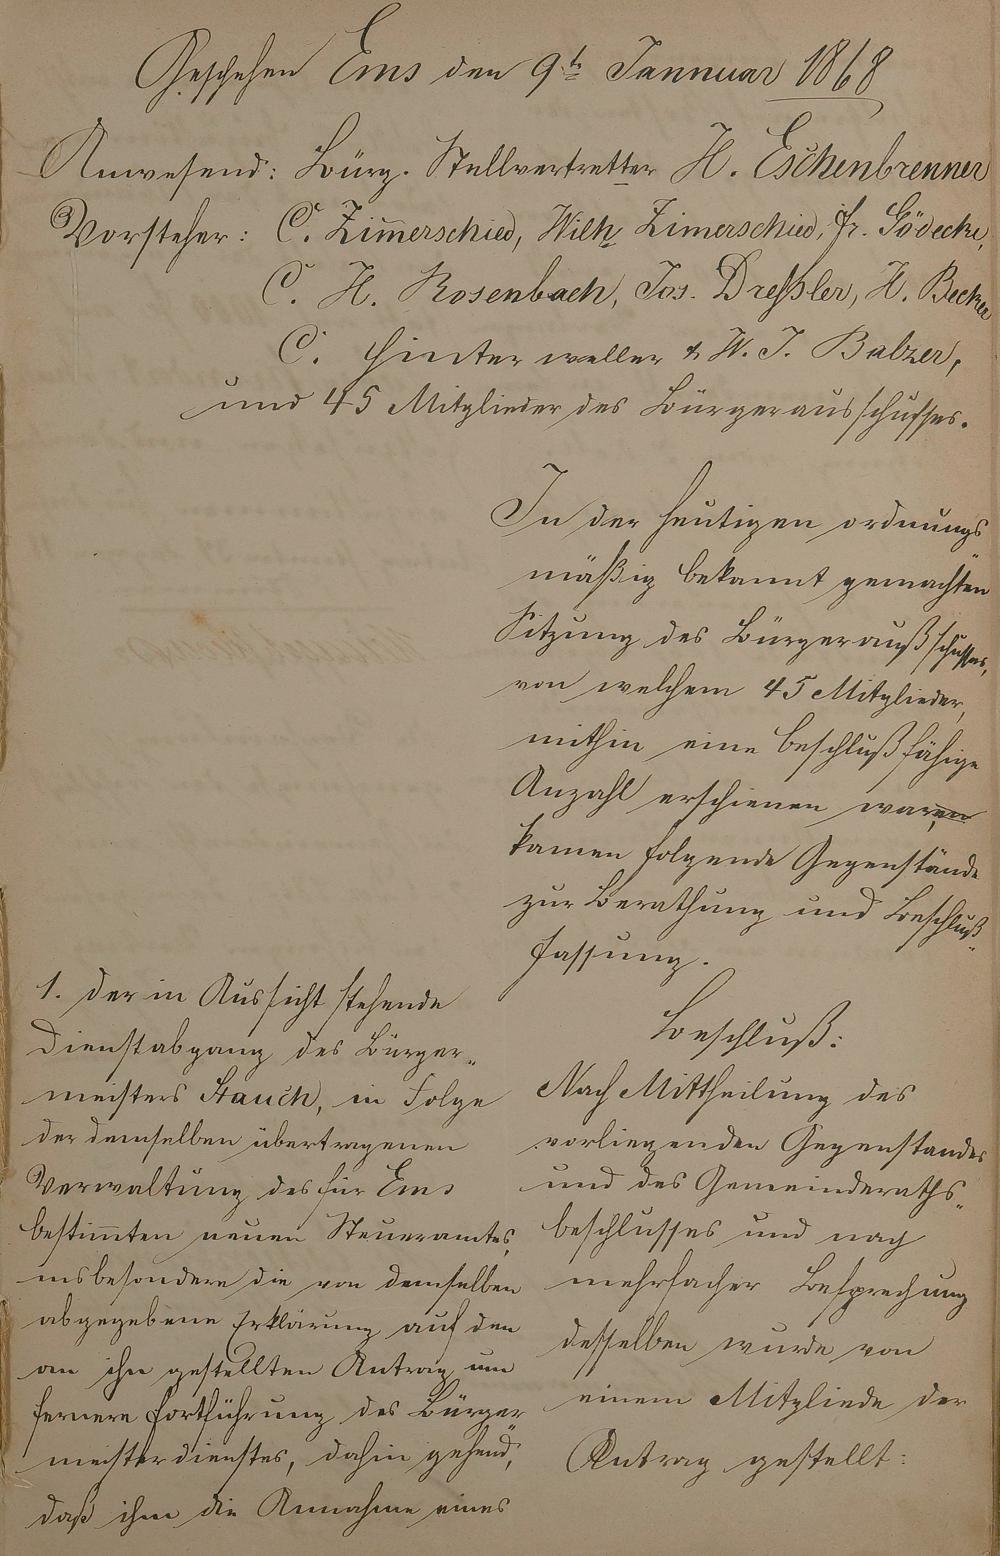 Geschehen Ems den 9t Jannuar 1868
Anwesend: Bürg. Stellvertretter H. Eschenbrenner
Vorsteher: C. Zim̅erschied, Wilh Zimerschied, Fr. Gödecke,
C. H. Rosenbach, Jos. Dreßler, H. Becker
C. Hinterweller & W. J. Balzer,
und 45 Mitglieder des Bürgerausschusses.
In der heutigen ordnungs
mäßig bekannt gemachten
Sitzung des Bürgeraußschusses,
von welchem 45 Mitglieder,
mithin eine beschlußfähige
Anzahl erschienen waren
kamen folgende Gegenstände
zur Berathung und Beschluß„
fassung.
1. der in Aussicht stehende
Dienstabgang des Bürger„
meisters Stauch, in Folge
der demselben übertragenen
Verwaltung des für Ems
bestim̅ten neuen Steueramtes,
insbesondere die von demselben
abgegebene Erklärung auf den
an ihn gestellten Antrag um
fernere Fortführung des Bürger„
meisterdienstes, dahin gehend,
daß ihm die Annahme eines
Beschluß:
Nach Mittheilung des
vorliegenden Gegenstandes
und des Gemeinderaths„
beschlusses und nach
mehrfacher Besprechung
desselben wurde von
einem Mitgliede der
Antrag gestellt: